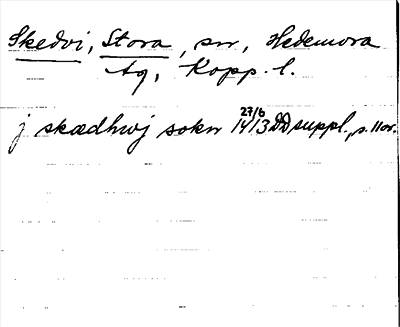 Skedvi, Stora, sn, Hedemora
tg, Kopp. l.
j skædhwj sokn 27/6 1413 DD suppl., s. 11 or.